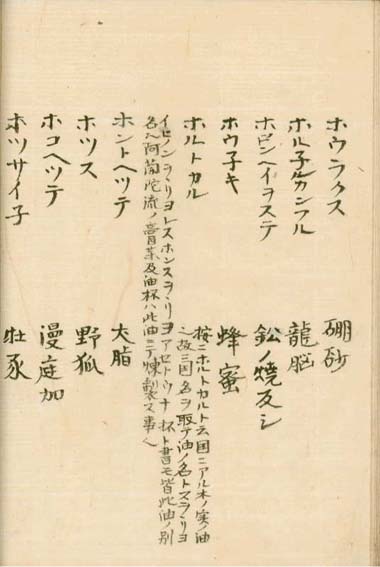 ホウラクス 硼砂
ホル子ルカンフル 龍脳
ヘイヲステ 鉛ノ焼反シ
ホウ子キ 蜂蜜
ホルトカル 按ニホルトカルト云国ニアル木ノ実ノ油
故ニ国名ヲ取テ油ノ名トスヲヽリヨ
イセノンヲヽリヨレスホンスヲヽリヨアセトウナ杯ト書モ皆此油ノ別
名也阿蘭陀流ノ膏薬及油杯ハ此油ニテ煉製ス事也
ホントヘツテ 犬脂
ホツス 野狐
ホコヘツテ 漫庭加
ホツサイ子 牡豕